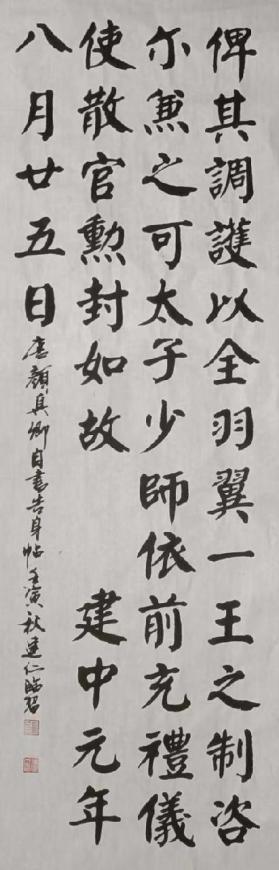 俾其調護以全羽翼一王之制咨
尒兼之可太子少師依前充禮儀
使散官勲封如故 建中元年
八月廿五日
唐顏真卿自書告身帖壬寅秋建仁臨習